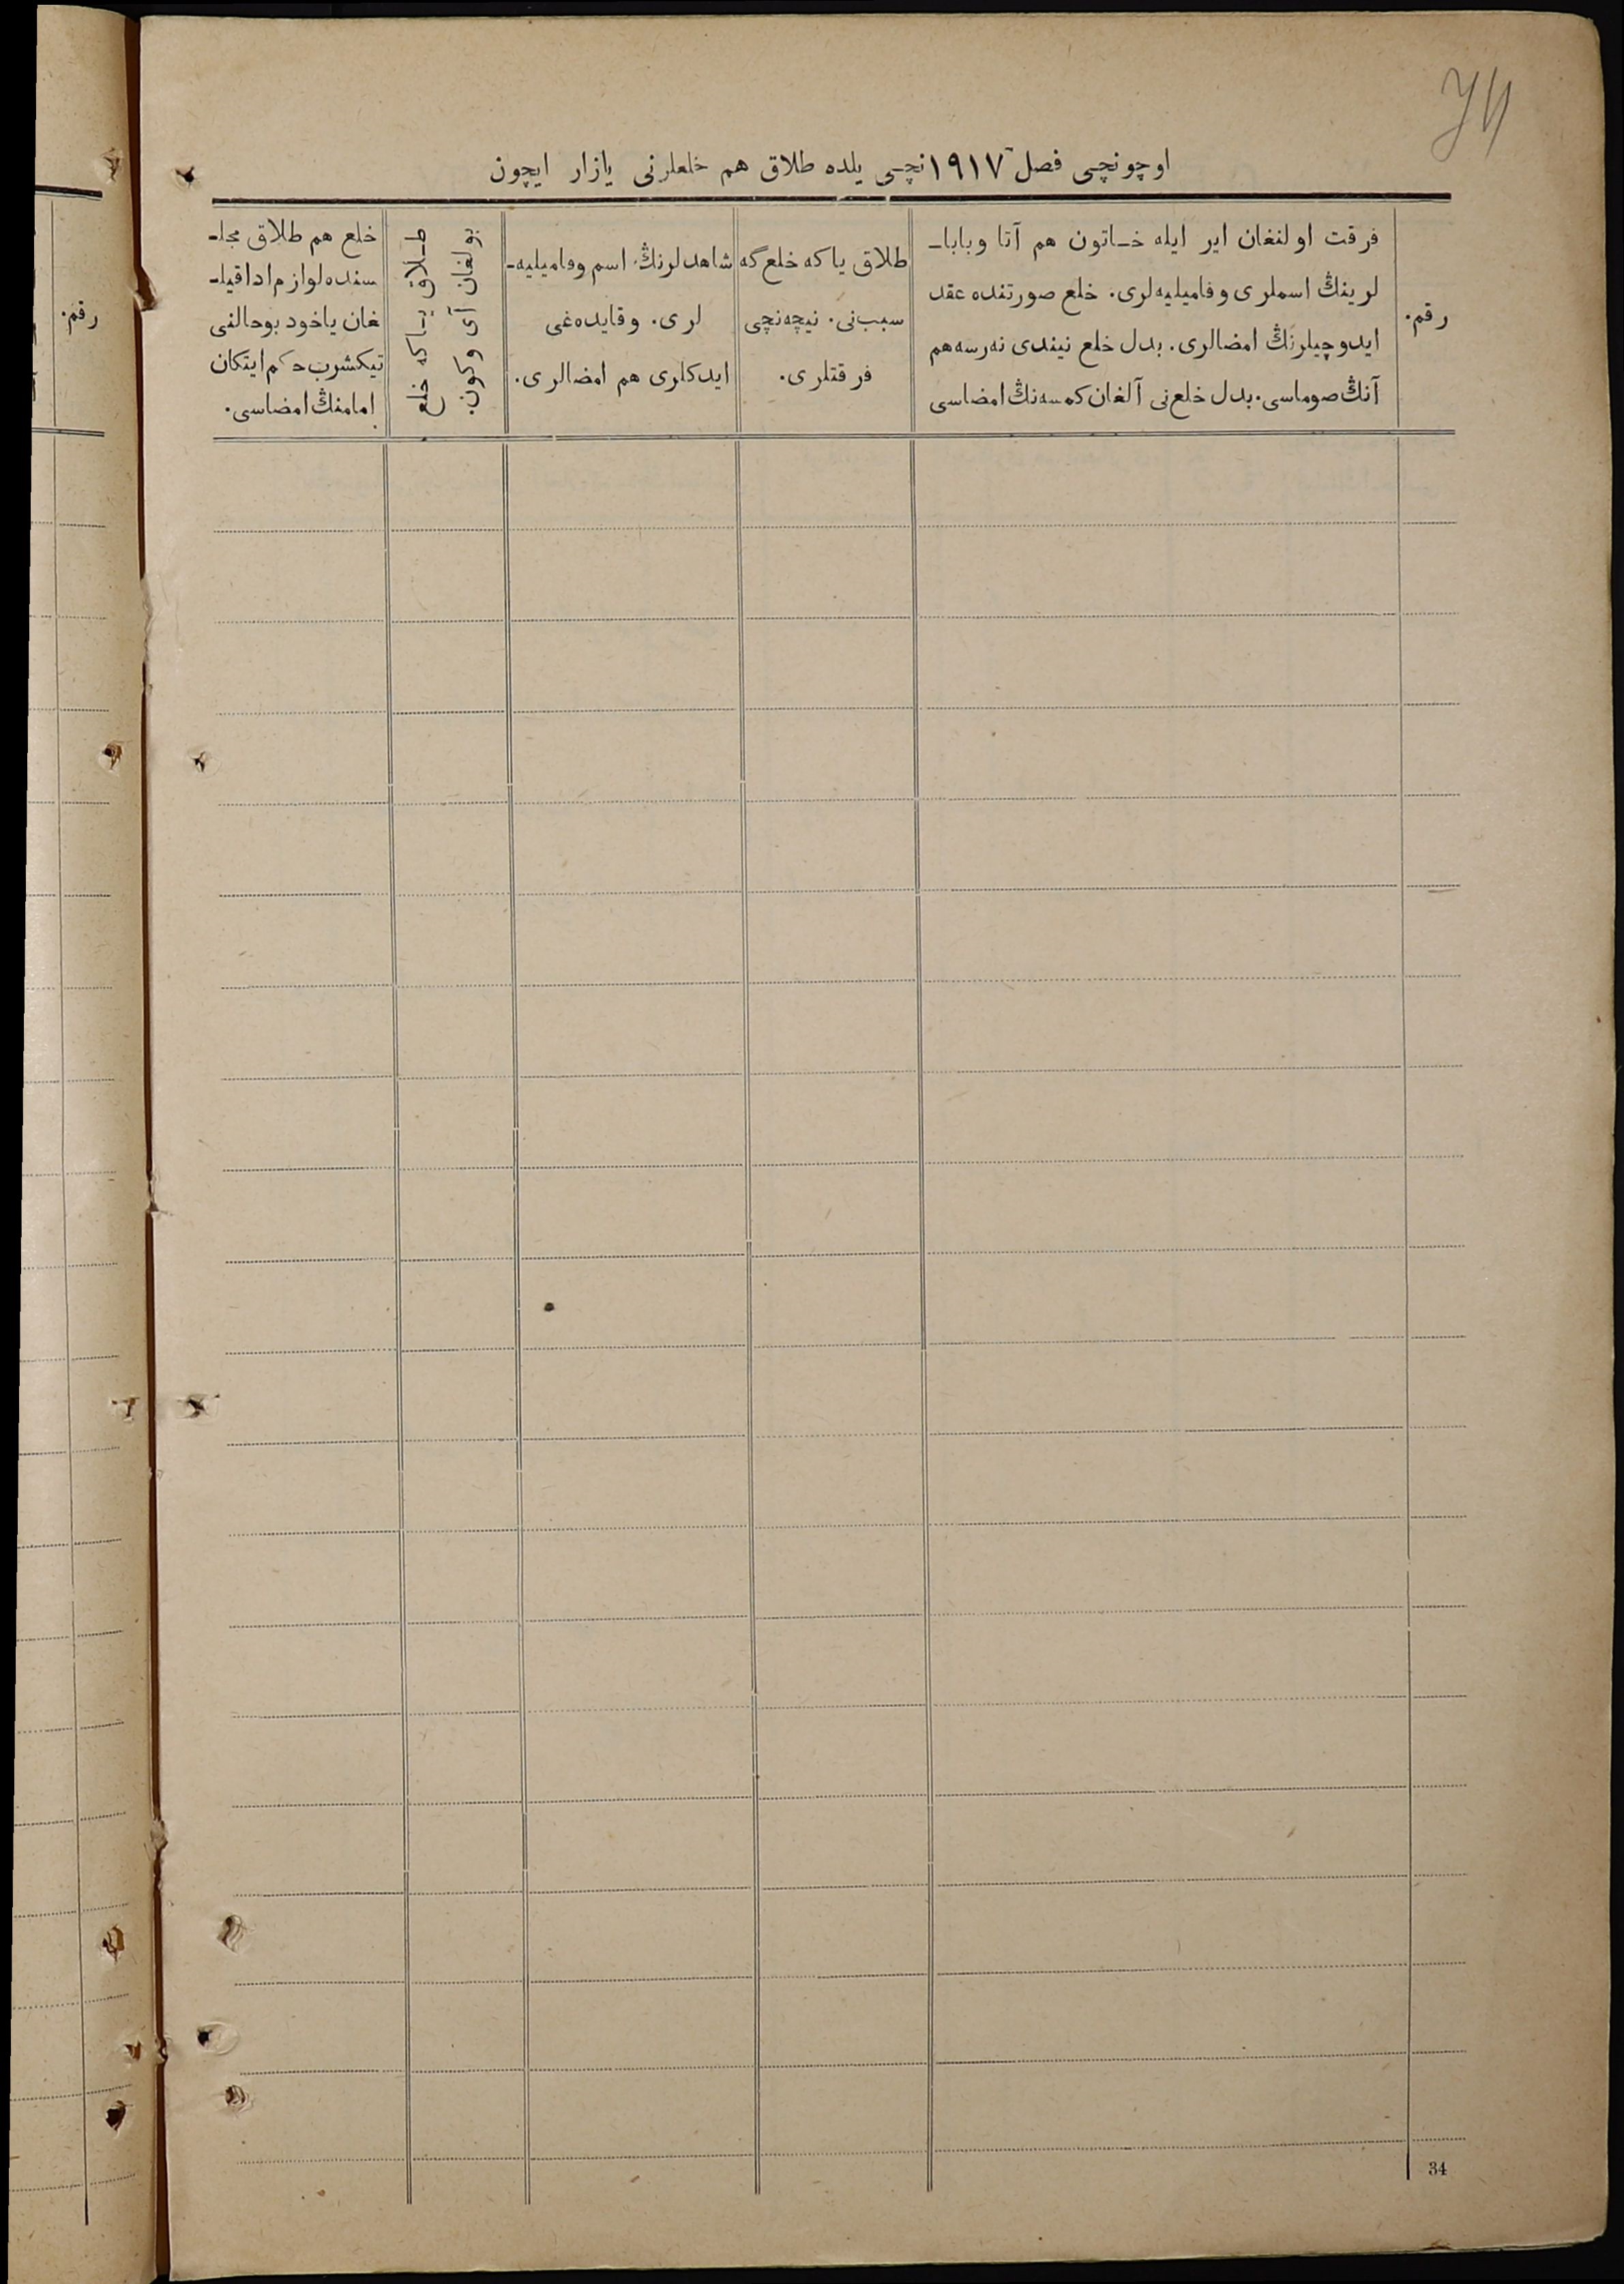 اوچونچی فصل ۱۹۱۷ نچی یلده طلاق هم خلعلرنی یازار ایچون
رقم.
فرقت اولنغان ایر ایله خاتون هم آتا وبابا-
لرینڭ اسملری وفامیلیه‌لری. خلع صورتنده عقد
ایدوچیلرنڭ امضالری. بدل خلع نیندی نه‌رسه هم
آنڭ صوماسی. بدل خلع‌نی آلغان کمسه‌نڭ امضاسی
طلاق یاکه خلع گه
سبب‌نی. نیچه‌نچی
فرقتلری.
شاهدلرنڭ اسم وفامیلیه-
لری. وقایده‌غی
ایدکلری هم امضالری.
طلاق یاکه خلع
بولغان آی وکون.
خلع هم طلاق مجل-
سنده لوازم ادا قیل-
غان یاخود بوحالنی
تیکشرب حکم ایتکان
امامنڭ امضاسی.
رقم.
34